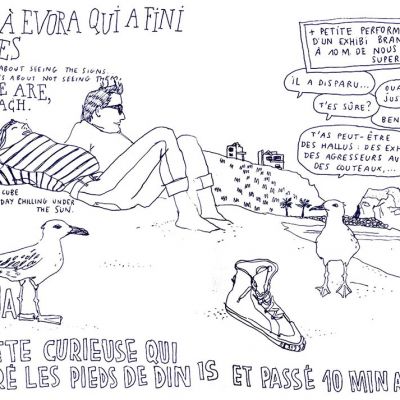 À EVORA QUI A FINI
ES
ABOUT SEEING THE SIGNS.
S ABOUT NOT SEEING THEM.
E ARE,
AGH.
CUBE
DAY CHILLING UNDER
THE SUN.
+ PETITE PERFORM
D'UN EXHIBI BRAN
À 10 M DE NOUS
SUPER
IL A DISPARU...
QUA
JUS
T'ES SÛRE?
BEN
T'AS PEUT-ÊTRE
DES HALLUS : DES EXH
DES AGRESSEURS AV
DES COUTEAUX,...
UA
TTE CURIEUSE QUI
RÉ LES PIEDS DE DIN IS ET PASSÉ 10 MIN A